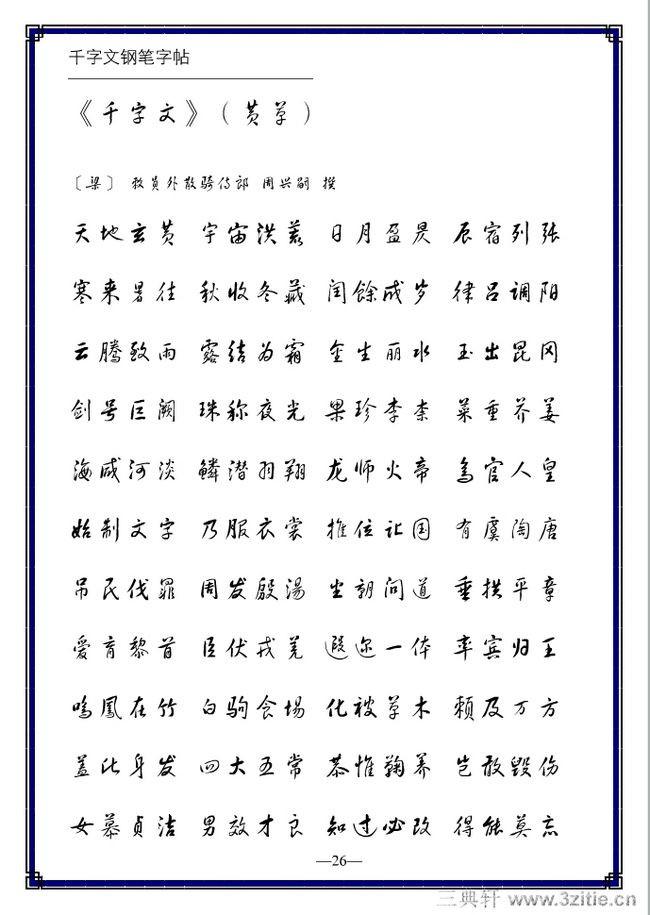 千字文钢笔字帖
《千字文》（黄草）
〔梁〕 敕员外散骑侍郎 周兴嗣 撰
天地玄黄 宇宙洪荒 日月盈昃 辰宿列张
寒来暑往 秋收冬藏 闰餘成岁 律吕调阳
云腾致雨 露结为霜 金生丽水 玉出昆冈
剑号巨阙 珠称夜光 果珍李柰 菜重芥姜
海咸河淡 鳞潜羽翔 龙师火帝 鸟官人皇
始制文字 乃服衣裳 推位让国 有虞陶唐
吊民伐罪 周发殷汤 坐朝问道 垂拱平章
爱育黎首 臣伏戎羌 遐迩一体 率宾归王
鸣凤在竹 白驹食场 化被草木 赖及万方
盖此身发 四大五常 恭惟鞠养 岂敢毁伤
女慕贞洁 男效才良 知过必改 得能莫忘
—26—
三典轩 www.3zitie.cn